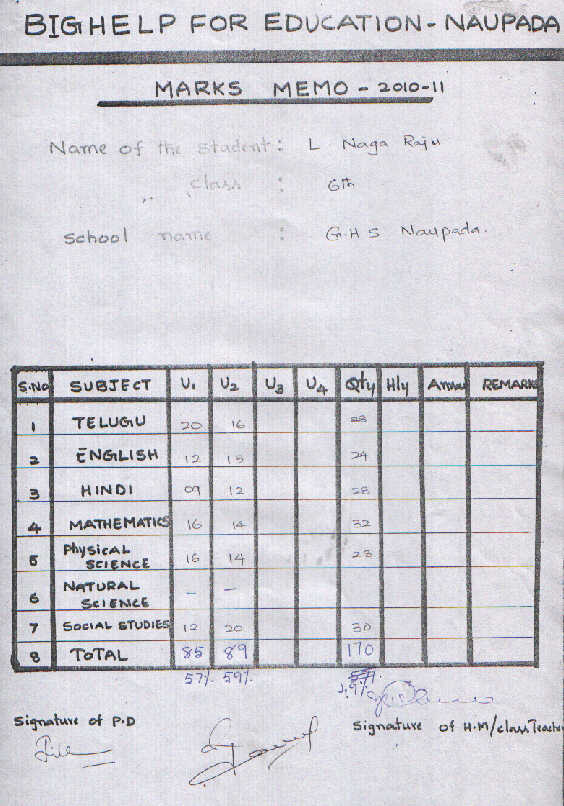 BIGHELP FOR EDUCATION - NAUPADA
MARKS MEMO - 2010-11
Name of the Student : L Naga Raju
class : 6th
School name : G.H S Naupada.
S.No SUBJECT U1 U2 U3 U4 Qty Hly Annu REMARKS
1 TELUGU 20 16 28
2 ENGLISH 12 15 24
3 HINDI 09 12 28
4 MATHEMATICS 16 14 32
5 Physical SCIENCE 16 14 28
6 NATURAL SCIENCE - -
7 SOCIAL STUDIES 12 20 30
8 TOTAL 85 89 170
57% 59%
Signature of P.D
Signature of H.M/class Teacher